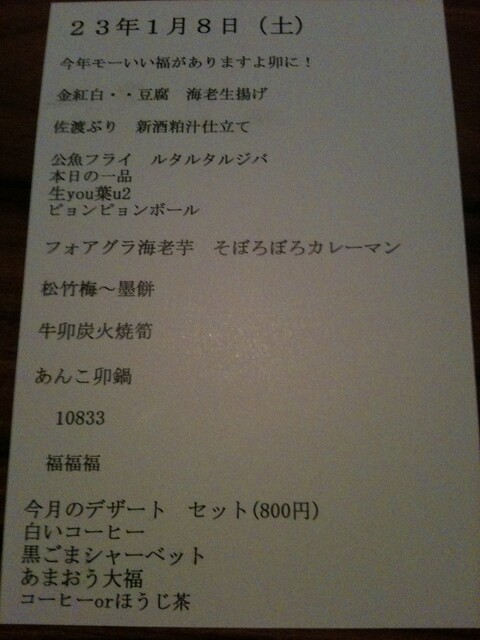 ２３年１月８日（土）
今年モーいい福がありますよ卯に！
金紅白・・豆腐　海老生揚げ
佐渡ぶり　新酒粕汁仕立て
公魚フライ　ルタルタルジバ
本日の一品
生you葉u2
ピョンピョンボール
フォアグラ海老芋　そぼろぼろカレーマン
松竹梅～墨餅
牛卯炭火焼筍
あんこ卯鍋
10833
福福福
今月のデザート　セット(800円)
白いコーヒー
黒ごまシャーベット
あまおう大福
コーヒーorほうじ茶